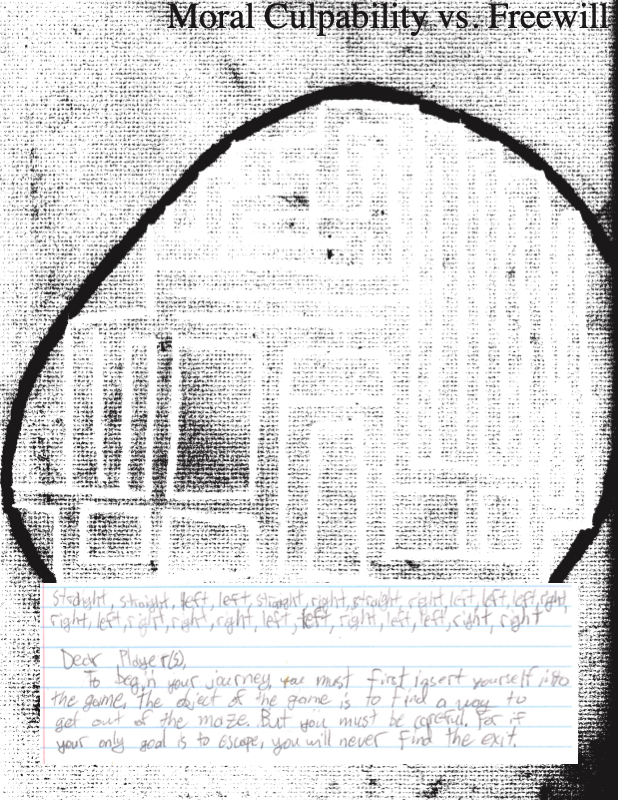 Moral Culpability vs. Freewill
straight, straight, left, left, straight, right, straight, right, left, left, left, right,
right, left, right, right, right, left, left, right, left, left, right, right
Dear Player(s),
To begin your journey, you must first insert yourself into
the game. The object of the game is to find a way to
get out of the maze. But you must be careful. For if
your only goal is to escape, you will never find the exit.